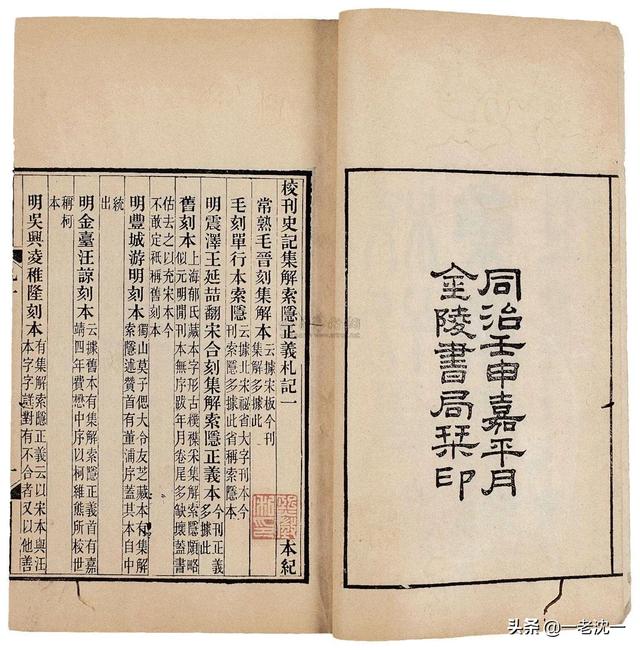 同治壬申嘉平月
金陵書局栞印
校刊史記集解索隱正義札記一 本紀
常熟毛晉刻集解本 云據宋板今刊
集解多據此
毛刻單行本索隱 云據北宋祕省大字刊本今
刊索隱多據此省稱索隱本
明震澤王延喆翻宋合刻集解索隱正義本 今刊正義
多據此
舊刻本 上海郁氏藏本字形古樸集解索隱頗略
似元明間刊本無序跋年月卷尾多缺壞蓋書
估去之以充宋本今
不敢定祇稱舊刻本
明豐城游明刻本 獨山莫子偲大令友芝藏本有集解
索隱述贊首有董浦序蓋其本自中
統
出
明金臺汪諒刻本 云據舊本有集解索隱正義首有嘉
靖四年費懋中序以柯維熊所校世
稱柯
本
明吳興凌稚隆刻本 有集解索隱正義云以宋本與汪
本字字詳對有不合者又以他善
头条 @一老沈一